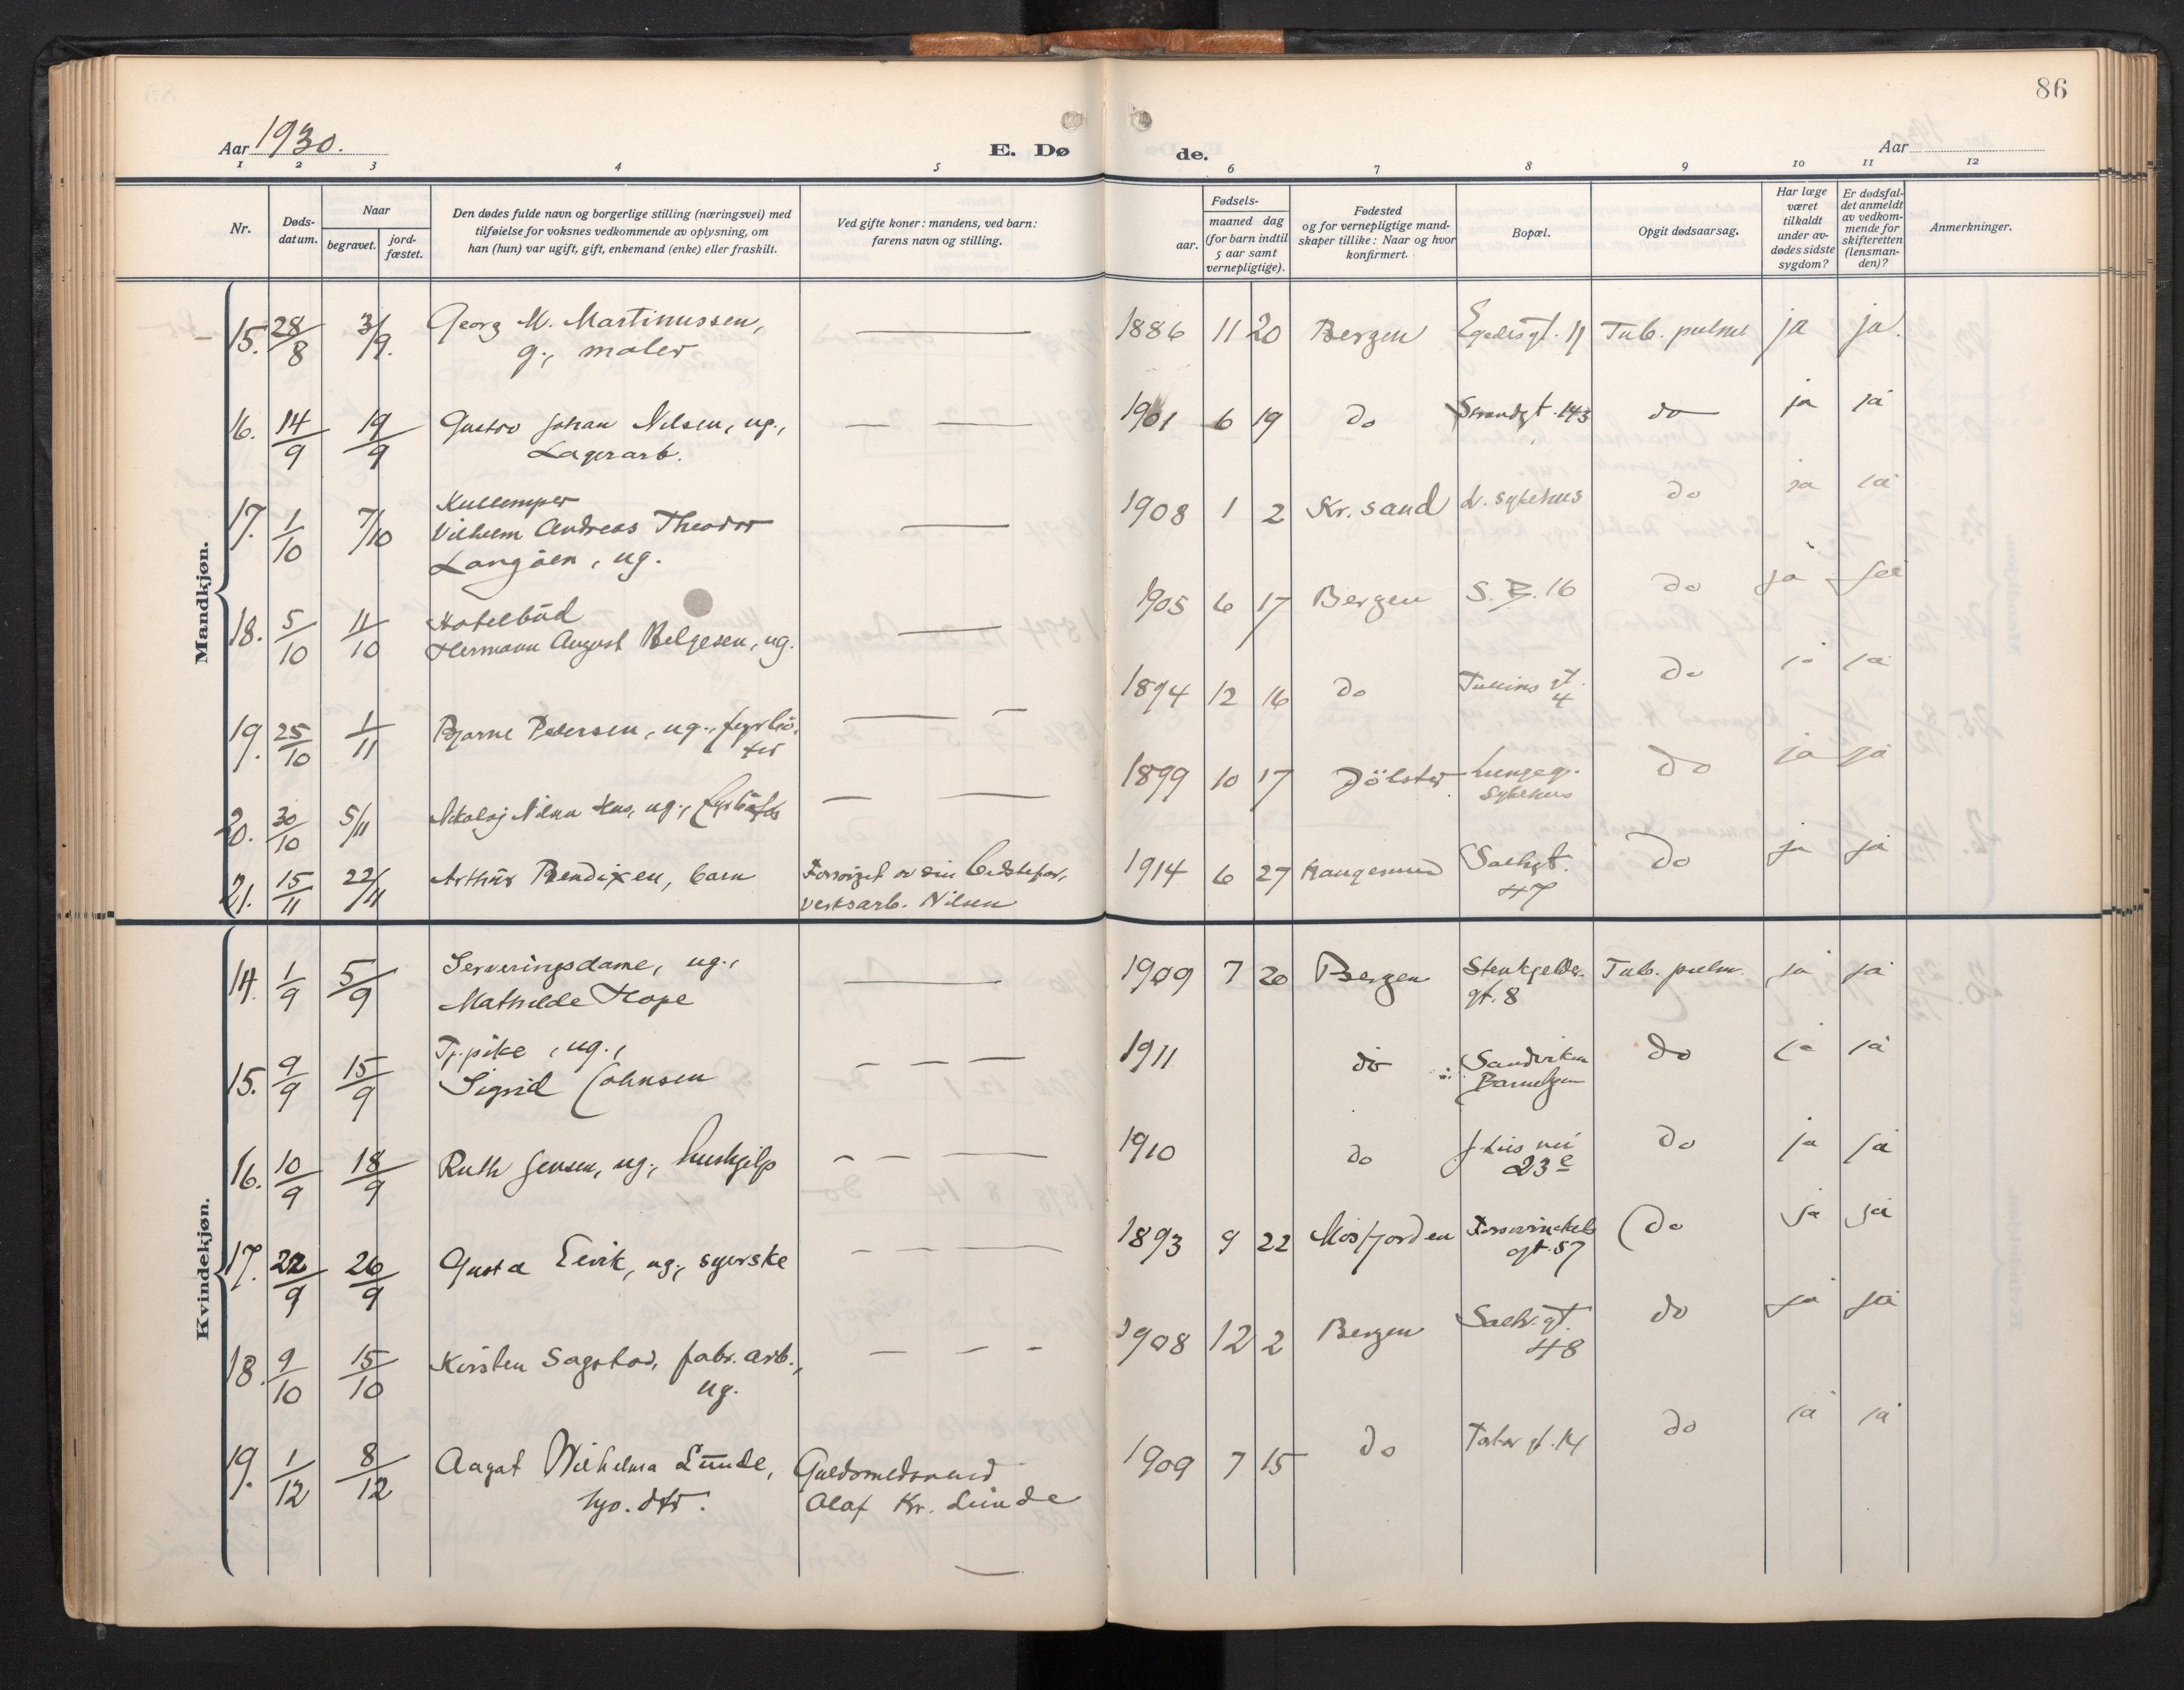 86
Aar 1930.
E. Dø
de.
Aar
1 2 3 4 5 6 7 8 9 10 11 12
Nr.
Døds-
datum.
Naar
begravet.
jord-
fæstet.
Den dødes fulde navn og borgerlige stilling (næringsvei) med
tilføielse for voksnes vedkommende av oplysning, om
han (hun) var ugift, gift, enkemand (enke) eller fraskilt.
Ved gifte koner: mandens, ved barn:
farens navn og stilling.
Fødsels-
aar.
maaned dag
(for barn indtil
5 aar samt
vernepligtige).
Fødested
og for vernepligtige mand-
skaper tillike: Naar og hvor
konfirmert.
Bopæl.
Opgit dødsaarsag.
Har læge
været
tilkaldt
under av-
dødes sidste
sygdom?
Er dødsfal-
det anmeldt
av vedkom-
mende for
skifteretten
(lensman-
den)?
Anmerkninger.
Mandkjøn.
15. 28/8 3/9. Georg M. Martinussen, — 1886 11 20 Bergen Egedesgt. 11 Tub. pulm. ja ja.
g., maler
16. 14/9 19/9 Gustav Johan Nilsen, ug., — — 1901 6 19 do Strandgt. 143 do ja ja
Lagerarb.
17. 1/10 7/10 Kullemper — 1908 1 2 Kr. sand L. sykehus do ja ja
Vilhelm Andreas Theodor
Langåen, ug.
18. 5/10 11/10 Hotelbud — 1905 6 17 Bergen S. B. 16 do ja ja
Hermann August Helgesen, ug.
19. 25/10 1/11 Bjarne Pedersen, ug., fyrbö- — — 1894 12 16 do Tullins gt. do ja ja
ter 4
20. 30/10 5/11 Nikolaj Nilsen ug., fyrböter — — 1899 10 17 Jölster Lungeg. do ja ja
sykehus
21. 15/11 22/11 Arthur Bendixen, barn Forsörget av sin bedstefar, 1914 6 27 Haugesund do ja ja
verksarb. Nilsen 47
Kvindekjøn.
14. 1/9 5/9 Serveringsdame, ug., — 1909 7 20 Bergen Stenkjelder- Tub. pulm. ja ja
Mathilde Hope gt. 8
15. 9/9 15/9 Tj.pike, ug., — — — 1911 do Sandviken do ja ja
Sigrid Johnsen
16. 10/9 18/9 Ruth Jensen, ug., hushjelp — — — 1910 do do ja ja
23e
17. 22/9 26/9 Gusta Eivik, ug., syerske — — — 1893 9 22 Mosfjorden do ja ja
gt. 57
18. 9/10 15/10 Kirsten Sagstad, fabr. arb., — — — 1908 12 2 Bergen do ja ja
ug. 48
19. 1/12 8/12 Aagot Wilhelma Lunde, Guldsmedsvend 1909 7 15 do gt. 14 do ja ja
hjv. dtr. Olaf Kr. Lunde
—